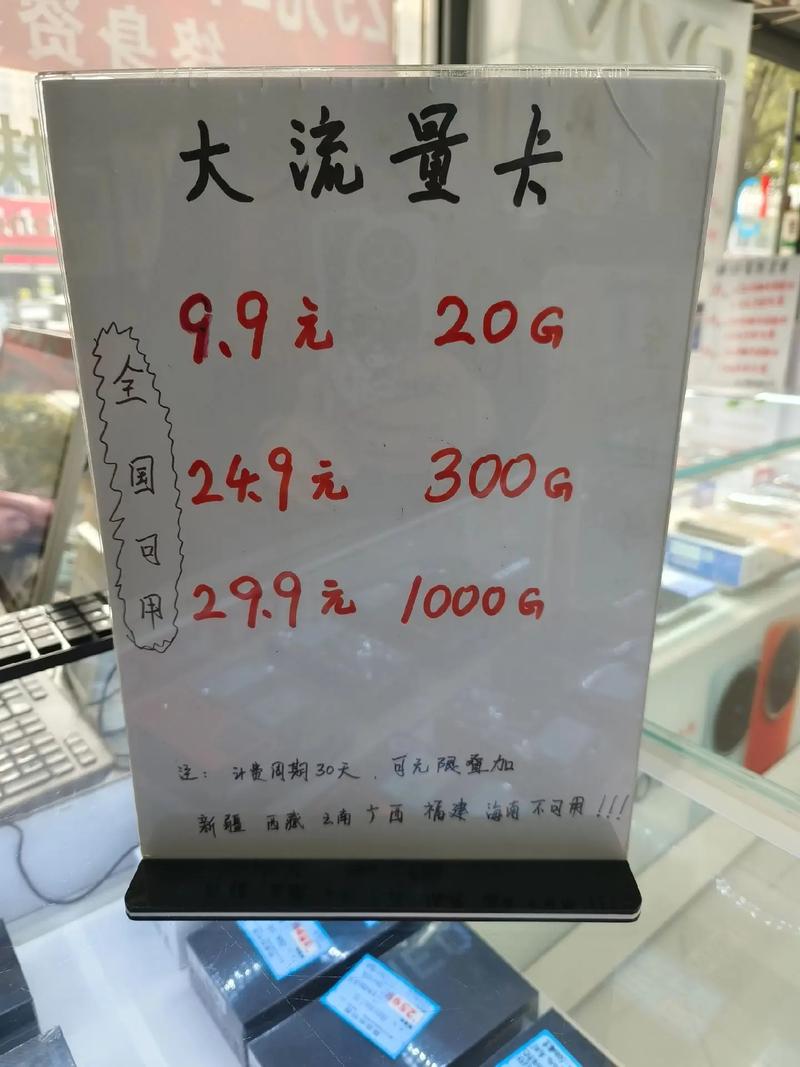 大流量卡
9.9元 20G
全国可用
24.9元 300G
29.9元 1000G
注：计费周期30天，可无限叠加
新疆 西藏 云南 广西 福建 海南 不可用!!!
终身资